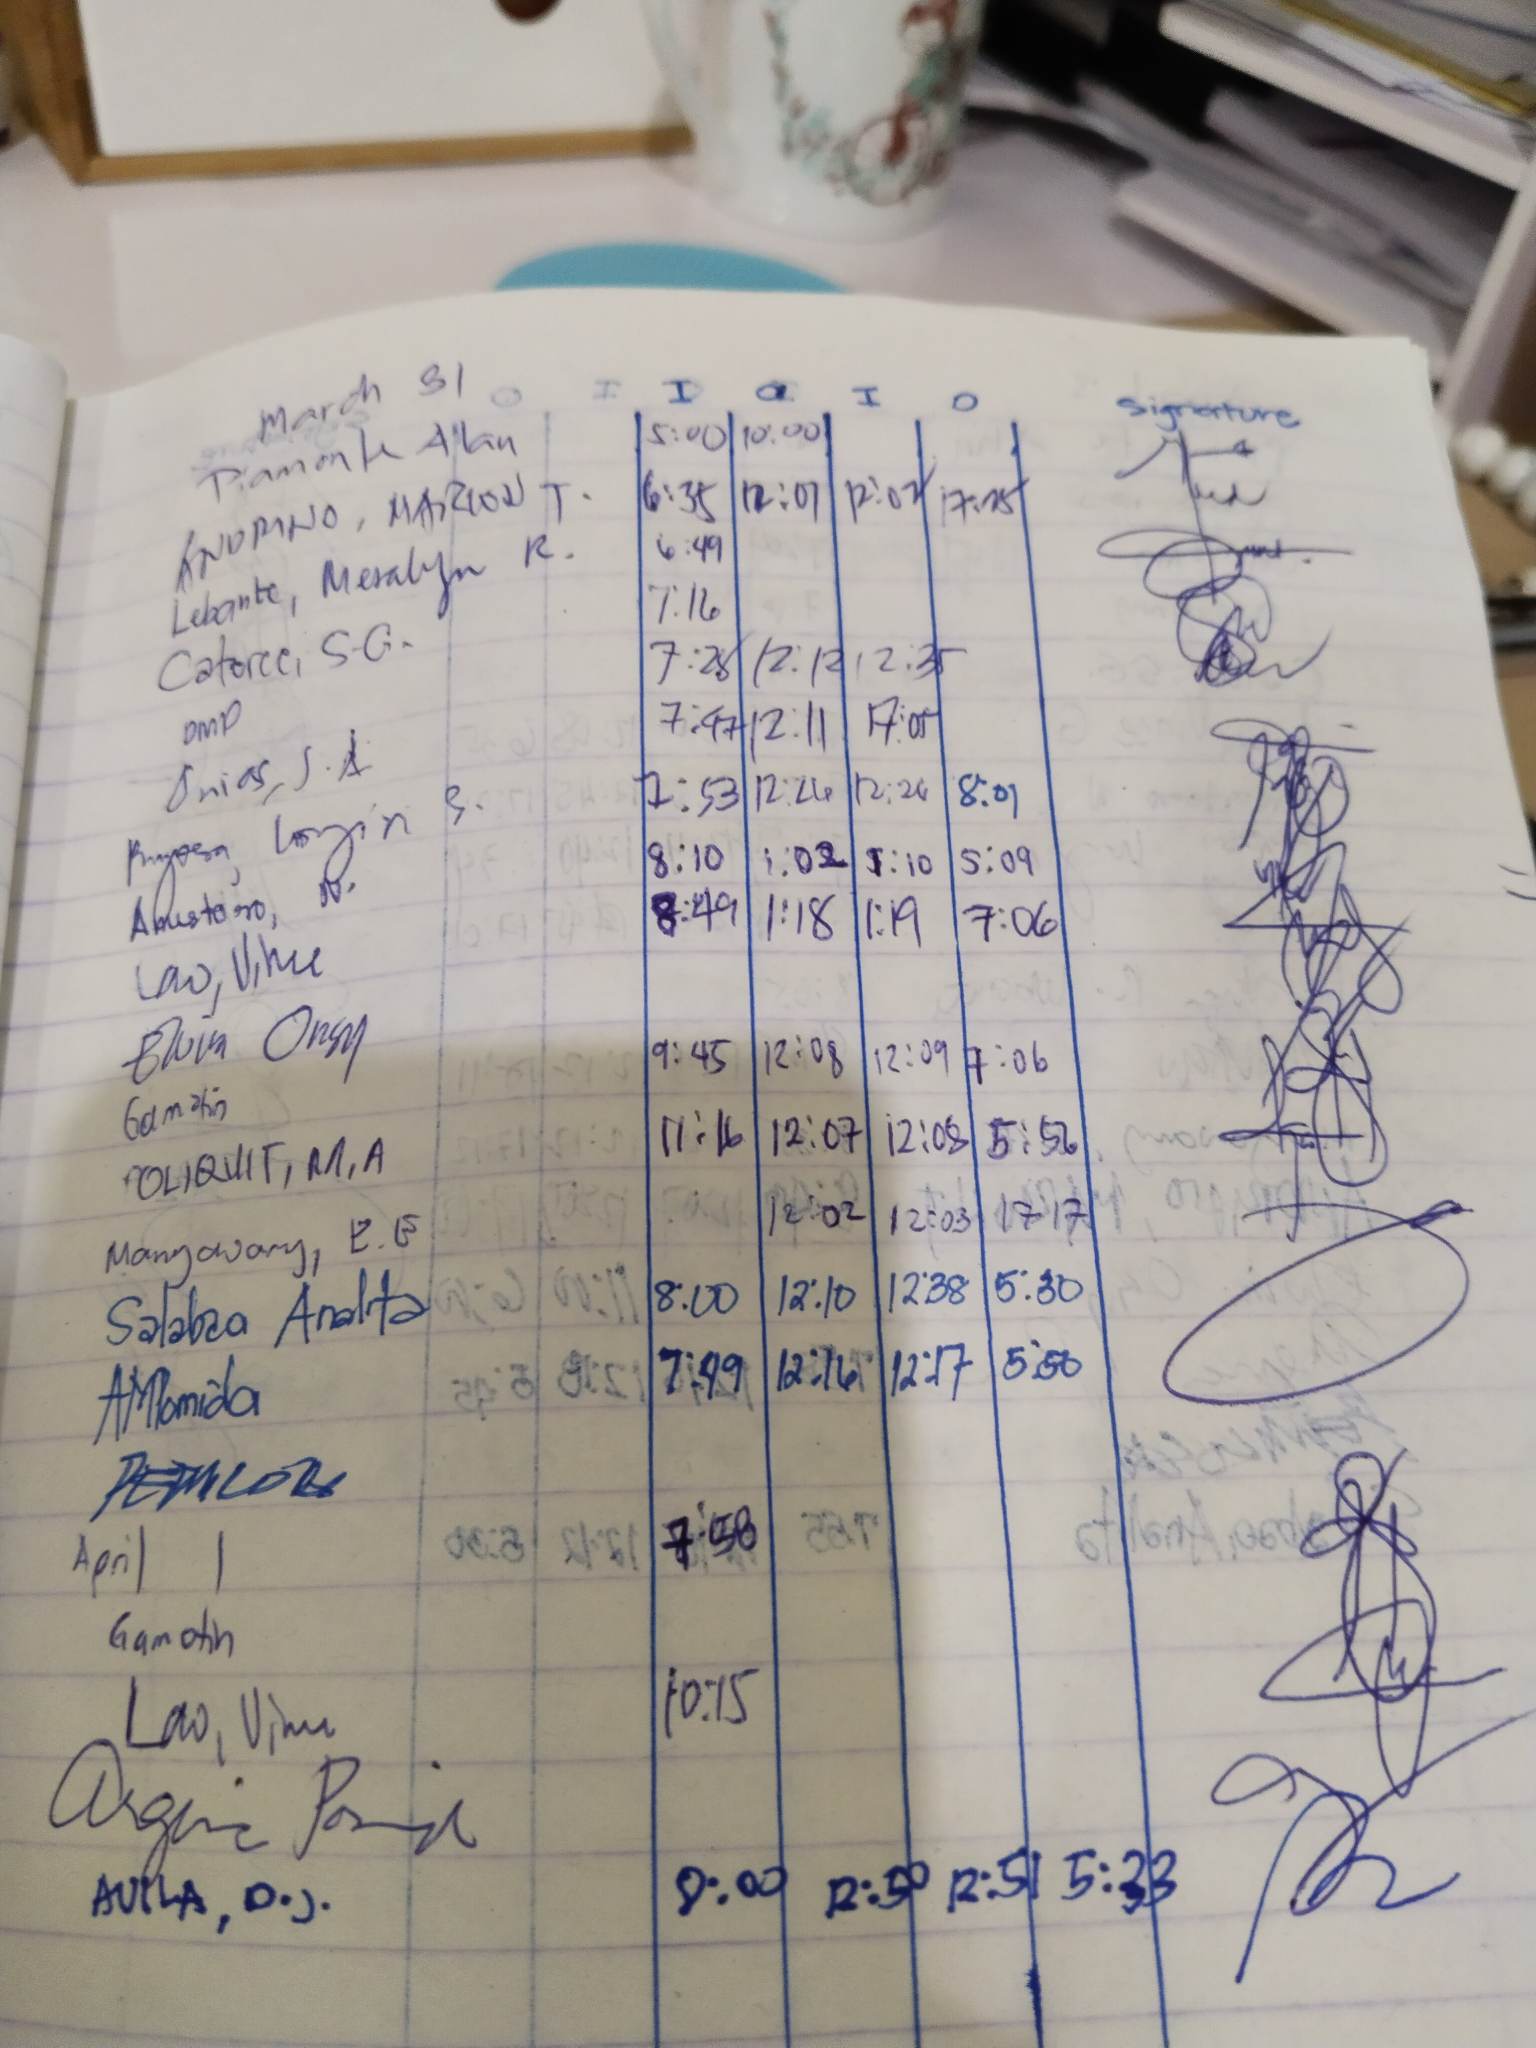 March 31 I O I O Signature
Piamonte Alan 5:00 10:00
ANDRINO, MARLON T. 6:35 12:07 12:07 17:25
Lebante, Meralyn R. 6:49
Catorce, S.G. 7:16
DMP 7:28 12:12 12:35
Onias, J.A 7:47 12:11 17:05
S. 7:53 12:26 12:26 8:01
N. 8:10 1:02 1:10 5:09
Lao, Vime 8:49 1:18 1:19 7:06
Elvin Ongy
Gamotin 9:45 12:08 12:09 7:06
OLIQUIT, M, A 11:16 12:07 12:08 5:56
Mangawang, E.E 12:02 12:03 17:17
Salabza Analita 8:00 12:10 12:38 5:30
AMPomida 7:49 12:16 12:17 5:50
April 1
Gamotin 7:58
Lao, Vime 10:15
AVILA, D.J. 8:00 12:50 12:51 5:33